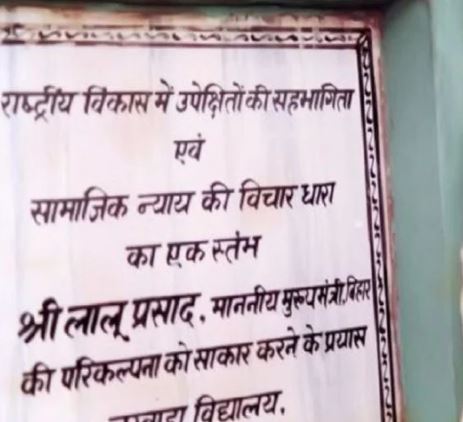 राष्ट्रीय विकास में उपेक्षितों की सहभागिता
एवं
सामाजिक न्याय की विचार धारा
का एक स्तंभ
श्री लालू प्रसाद, माननीय मुख्यमंत्री, बिहार
की परिकल्पना को साकार करने के प्रयास
विद्यालय,